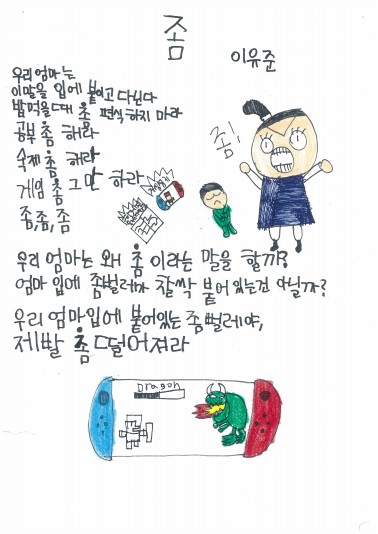 좀
이유준
우리 엄마는
이말을 입에 붙이고 다닌다
밥먹을때 좀 편식하지 마라
공부 좀 해라
숙제 좀 해라
게임 좀 그만 하라
좀, 좀, 좀
좀!
우리 엄마는 왜 좀 이라는 말을 할까?
엄마 입에 좀벌레가 찰싹 붙어 있는건 아닐까?
우리 엄마입에 붙어있는 좀벌레야,
제발 좀 떨어져라
Dragon